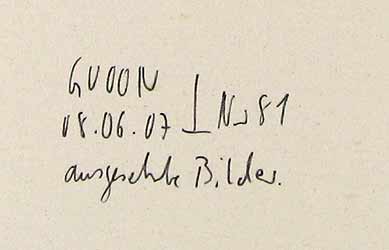 GUOON
08.06.07 ⊥ No 81
ausgesetzte Bilder.